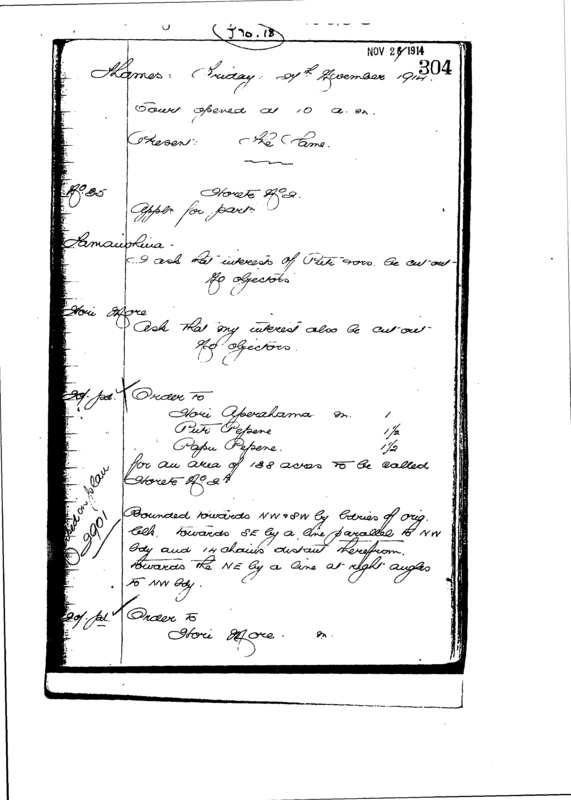 J 70.18
NOV 26 1914
304
Thames: Friday: 27th November 1914.
Court opened at 10 a.m.
Present: The Same.
No 35 Horete No 2.
Appln for partn
I ask that interests of Piti &ors. be cut out
No objectors
Hori More
Ask that my interest also be cut out
No objectors.
Order to
Hori Aperahama m. 1
Piti Pepene 1 1/2
Papu Pepene. 1 1/2
for an area of 188 acres to be called
Horete No 2A
Bounded towards NW & SW by bdries of orig.
blk. towards SE by a line parallel to NW
bdy and 14 chains distant therefrom.
towards the NE by a line at right angles
to NW bdy.
on plan
2901
Order to
Hori More. m.